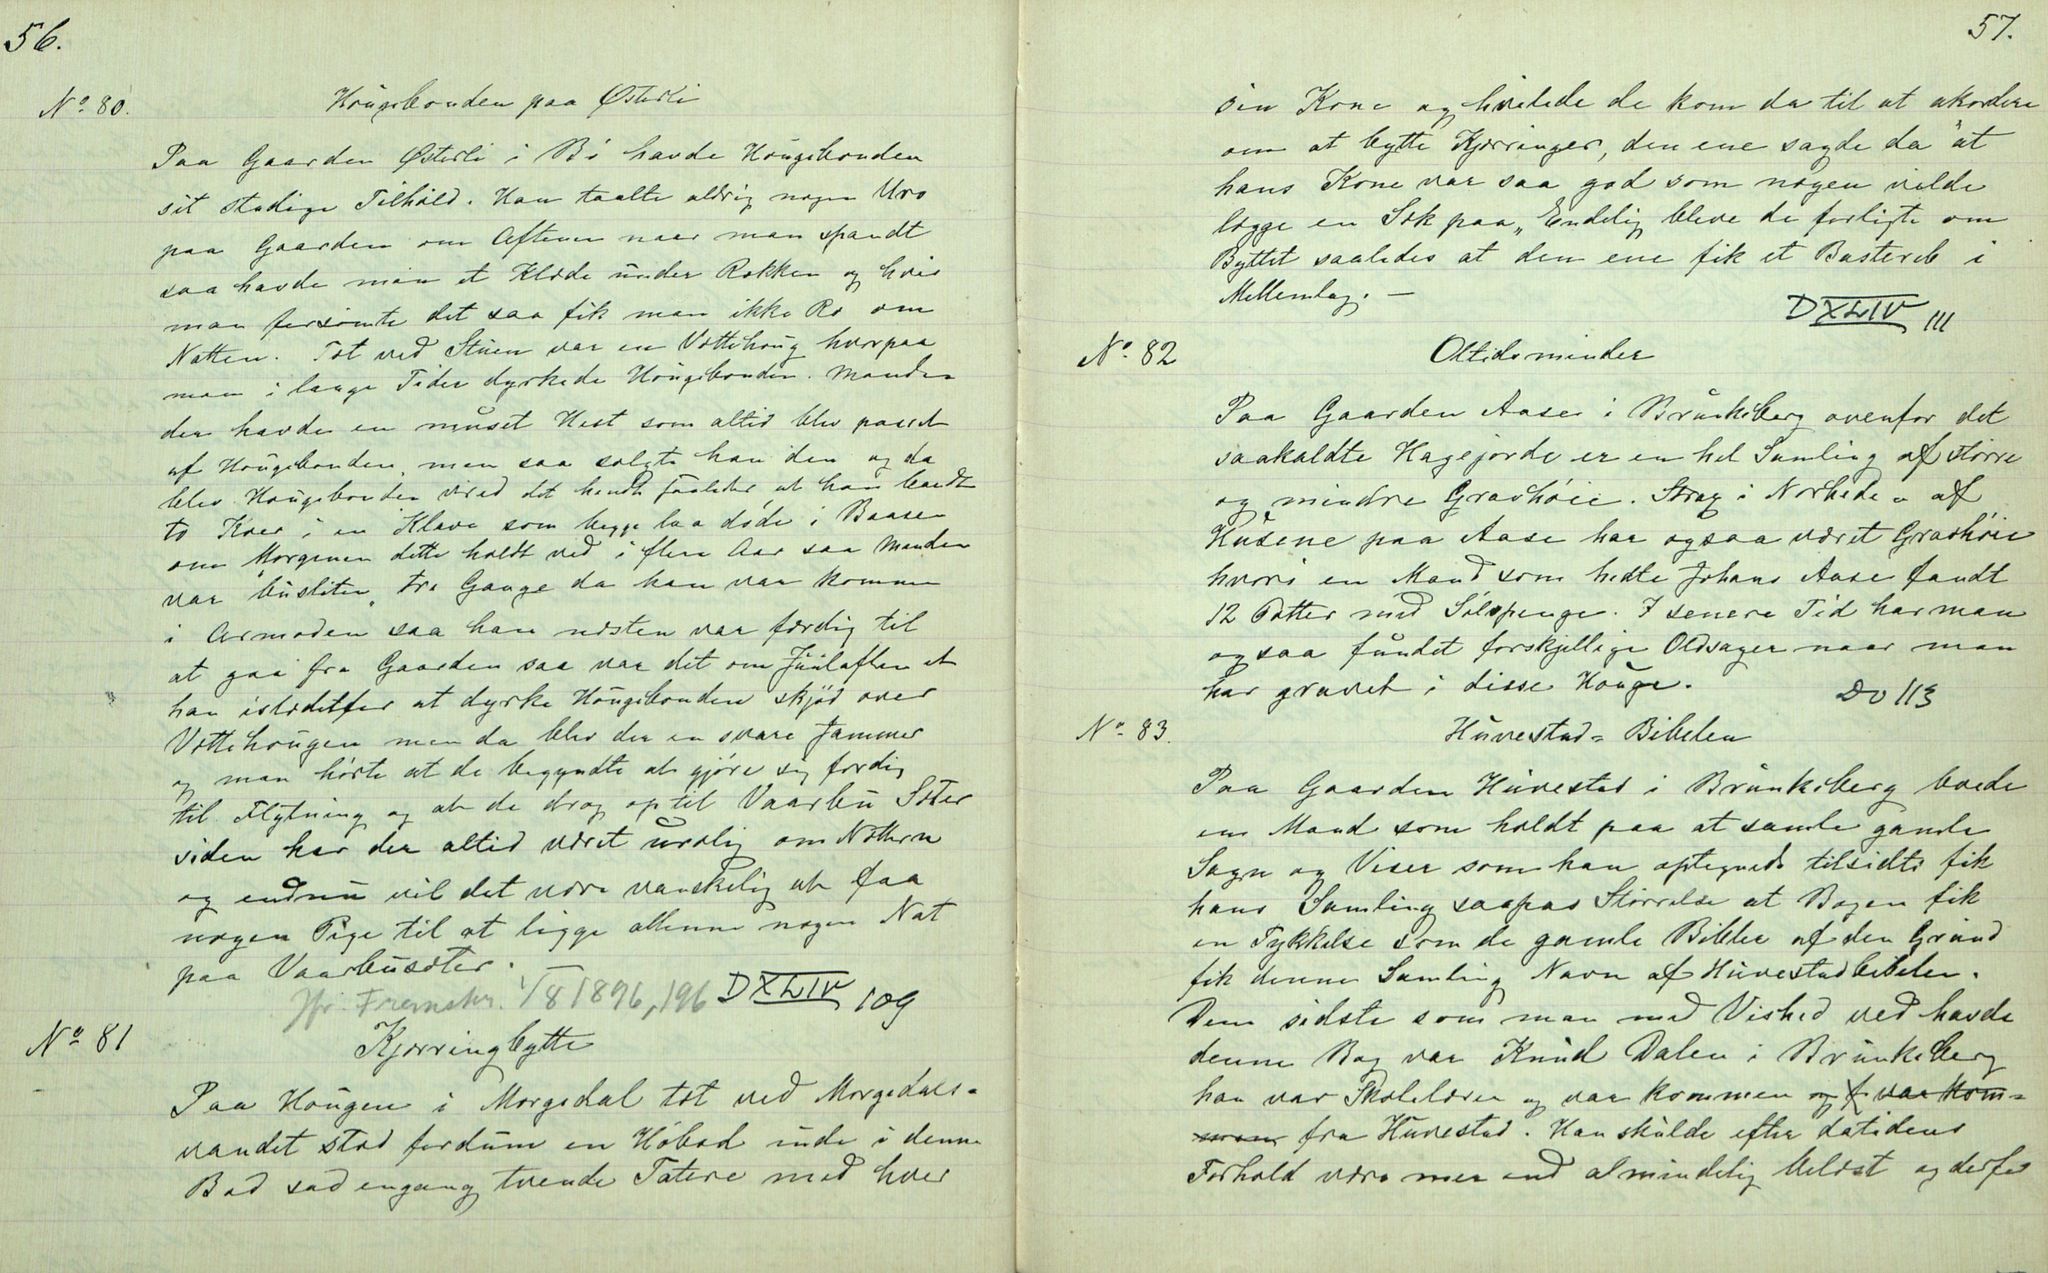 56.
No 80. Hougebonden paa Østerli
Paa Gaarden Østerli i Bø havde Hougebonden
sit stadige Tilhold. Han taalte aldrig nogen Uro
paa Gaarden om Aftenen naar man spandt
saa havde man et Klæde under Rokken og hvis
man forsømte det saa fik man ikke Ro om
Natten. Tæt ved Stuen var en Vettehoug hvorpaa
man i lange Tider dyrkede Hougebonden. Manden
der havde en muset Hest som altid blev passet
af Hougebonden, men saa solgte han den og da
blev Hougebonden vred det hendte saaledes at han bandt
to Koer i en Klave som begge laa døde i Baasen
om Morgenen dette holdt ved i flere Aar saa Manden
var busliten tre Gange da han var kommen
i Armoden saa han næsten var færdig til
at gaa fra Gaarden saa var det om Juulaften at
han istedetfor at dyrke Hougebonden skjød over
Vettehougen men da blev der en svare Jammer
og man hørte at de begyndte at gjøre sig færdig
til Flytning og at de drog op til Vaarbu Sæter
siden har der altid været urolig om Nætterne
og endnu vil det være vanskelig at faa
nogen Pige til at ligge allenne nogen Nat
paa Vaarbusæter.
Jfr. Fremskr. 1/8 1896, 196 DXLIV 109
No 81 Kjærringbytte
Paa Hougen i Morgedal tæt ved Morgedals=
vandet stod fordum en Høbod inde i denne
Bod sad engang tvende Tatere med hver
57.
sin Kone og hvilede de kom da til at akordere
om at bytte Kjærringer, den ene sagde da "at
hans Kone var saa god som nogen vilde
lægge en Sæk paa„ Endelig bleve de forligte om
Byttet saaledes at den ene fik et Bastereb i
Mellemlag. —
DXLIV 111
No 82 Oltidsminder
Paa Gaarden Aase i Brunkeberg ovenfor det
saakaldte Hagejorde er en hel Samling af større
og mindre Gravhøie. Strax i Norheden af
Husene paa Aase har ogsaa været Gravhøie
hvori en Mand som hedte Johans Aase fandt
12 Potter med Sølvpenge. I senere Tid har man
ogsaa fundet forskjellige Oldsager naar man
har gravet i disse Houge.
Do 113
No 83. Huvestad= Bibelen
Paa Gaarden Huvestad i Brunkeberg boede
en Mand som holdt paa at samle gamle
Sagn og Viser som han optegnede tilsidst fik
hans Samling saapas Størrelse at Bogen fik
en Tykkelse som de gamle Bibler af den Grund
fik denne Samling Navn af Huvestadbibelen.
Den sidste som man med Vished ved havde
denne Bog var Knud Dalen i Brunkeberg
han var Skolelærer og var kommen og f var kom=
men fra Huvestad. Han skulde efter datidens
Forhold være mer end almindelig belæst og derfor